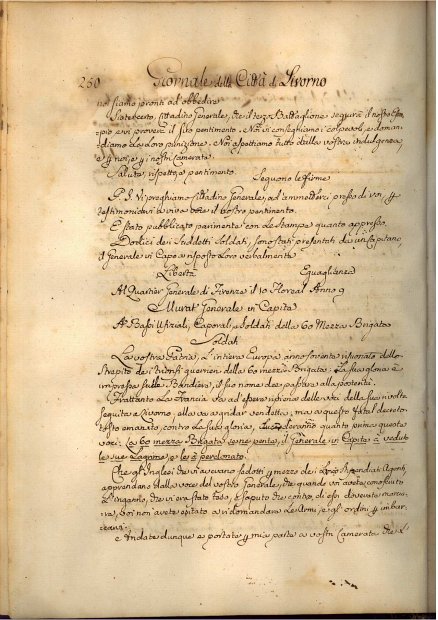 250 Giornale della Città di Livorno
noi siamo pronti ad obbedire
Siate certo, Cittadino Generale, che il terzo Battaglione seguirà il nostro Esem
pio e vi proverà il suo pentimento. Noi vi conseghiamo i colpevoli, e doman
diamo la loro punizione. Noi aspettiamo tutto dalla vostra indulgenza
e noi, e i nostri Camerata.
Salute, rispetto, e pentimento.
Seguono le firme
P.S. Vi preghiamo Cittadino Generale, ad ammetterci presso di voi,
testimoniarvi a viva voce il nostro pentimento.
È stato pubblicato parimente con le Stampe quanto appresso.
Dodici dei suddetti Soldati, sono stati presentati da un Capitano
il Generale in Capo a risposto loro verbalmente
Libertà Eguaglianza
Al Quartier Generale di Firenze il 10 Floreal Anno 9
Murat Generale in Capita
A Bassi Ufiziali, Caporali, e Soldati della 60 Mezza Brigata
Soldati
La vostra Patria, l'intiera Europa, anno sovente risuonato dello
strepito dei trionfi guerrieri della 60 mezza Brigata: La sua gloria è
impressa sulle Bandiera, il suo nome dee passare alla posterità.
Frattanto la Francia va ad essere ripiena delle voci della sua rivolta
seguita a Livorno, ella va a gridar vendetta; ma a questo fatal decreto
emanato, contro la sua gloria, quanto prima questa
voci: La 60 mezza Brigata se ne pente, il Generale in Capita à veduto
le sue Lagrime, e le à perdonato.
Che gl'Inglesi che vi avevano sedotti mezzo dei loro Agenti,
apprendano dalla voce del vostro Generale, che quando voi avete conosciuto
l'inganno, che vi era stato teso, e saputo che contro di essi dovevate marcia
re, voi non avete esitato a ridomandare le Armi, e gl'ordini imbar
carvi.
Andate dunque e portate mia parte a vostri Camerata che